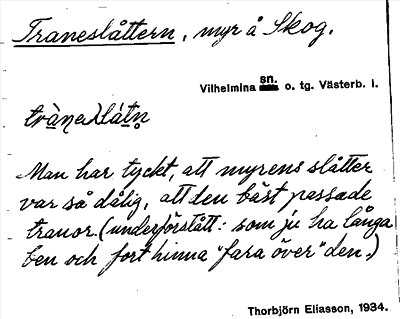 Traneslåttern, myr å Skog.
Vilhelmina sn. o. tg. Västerb. l.
Man har tyckt, att myrens slåtter
var så dålig, att den bäst passade
tranor. (underförstått: som ju ha långa
ben och fort hinna "fara över" den.)
Thorbjörn Eliasson, 1934.